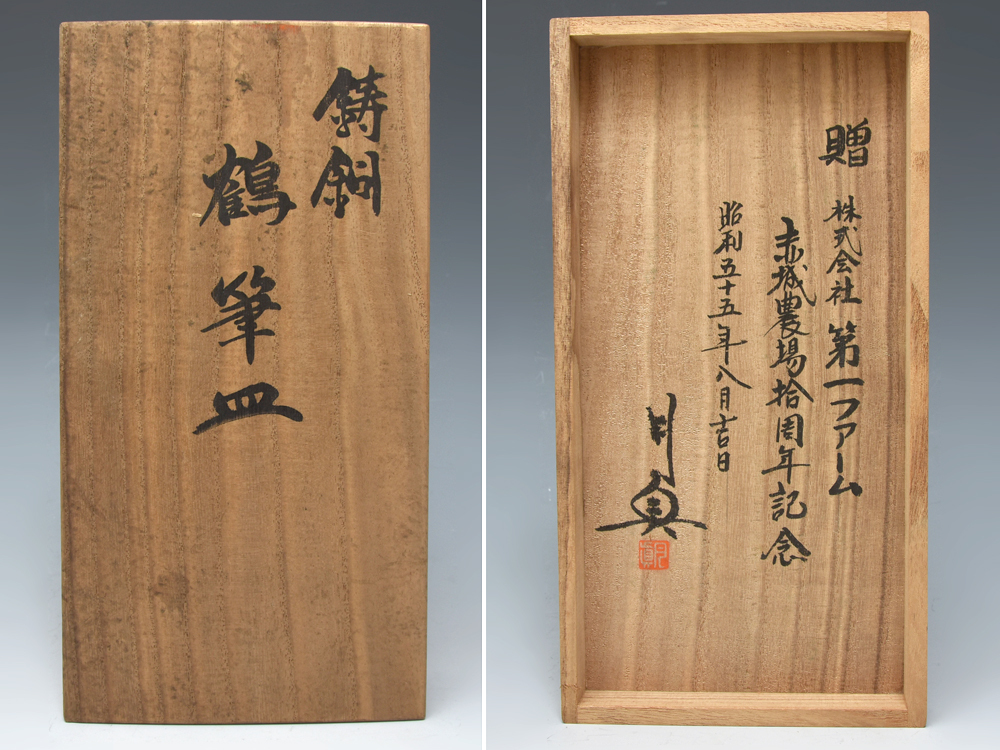 鋳銅
鶴筆皿
贈
株式会社 第一ファーム
赤城農場拾周年記念
昭和五十五年八月吉日